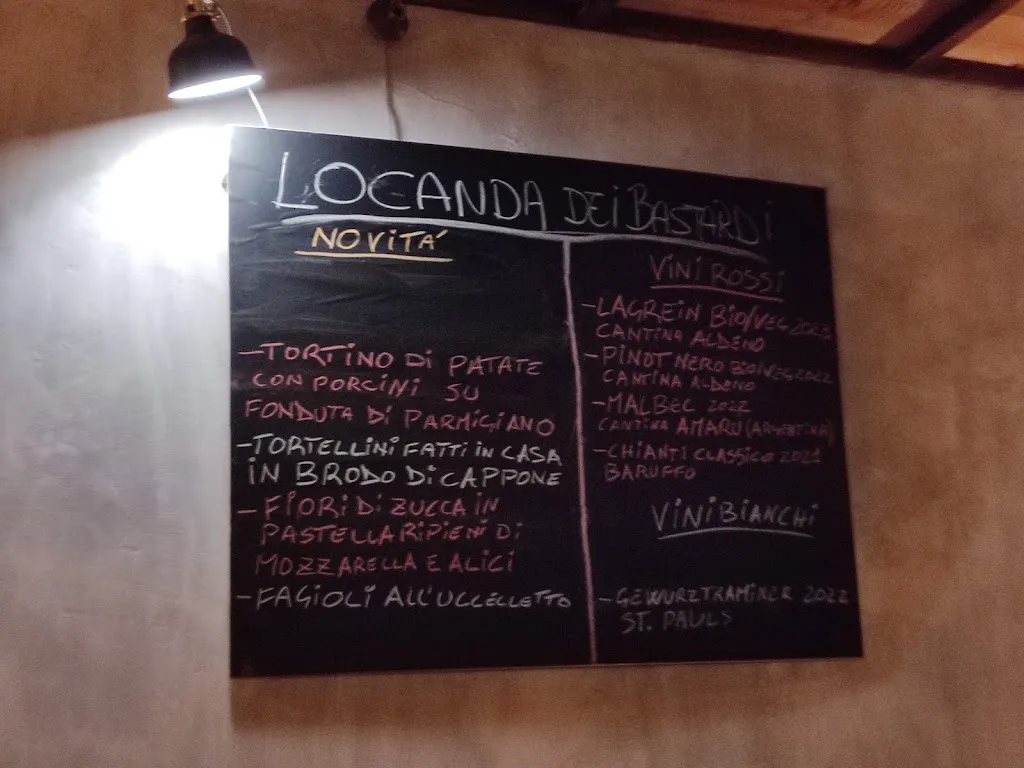 LOCANDA DEI BASTARDI
NOVITA'
-TORTINO DI PATATE
CON PORCINI SU
FONDUTA DI PARMIGIANO
-TORTELLINI FATTI IN CASA
IN BRODO DI CAPPONE
-FIORI DI ZUCCA IN
PASTELLA RIPIENI DI
MOZZARELLA E ALICI
-FAGIOLI ALL'UCCELLETTO
VINI ROSSI
-LAGREIN BIO/VEG 2023
CANTINA ALDENO
-PINOT NERO BIO/VEG 2022
CANTINA ALDENO
-MALBEC 2022
CANTINA AMARU (ARGENTINA)
-CHIANTI CLASSICO 2021
BARUFFO
VINI BIANCHI
-GEWURZTRAMINER 2022
ST. PAULS